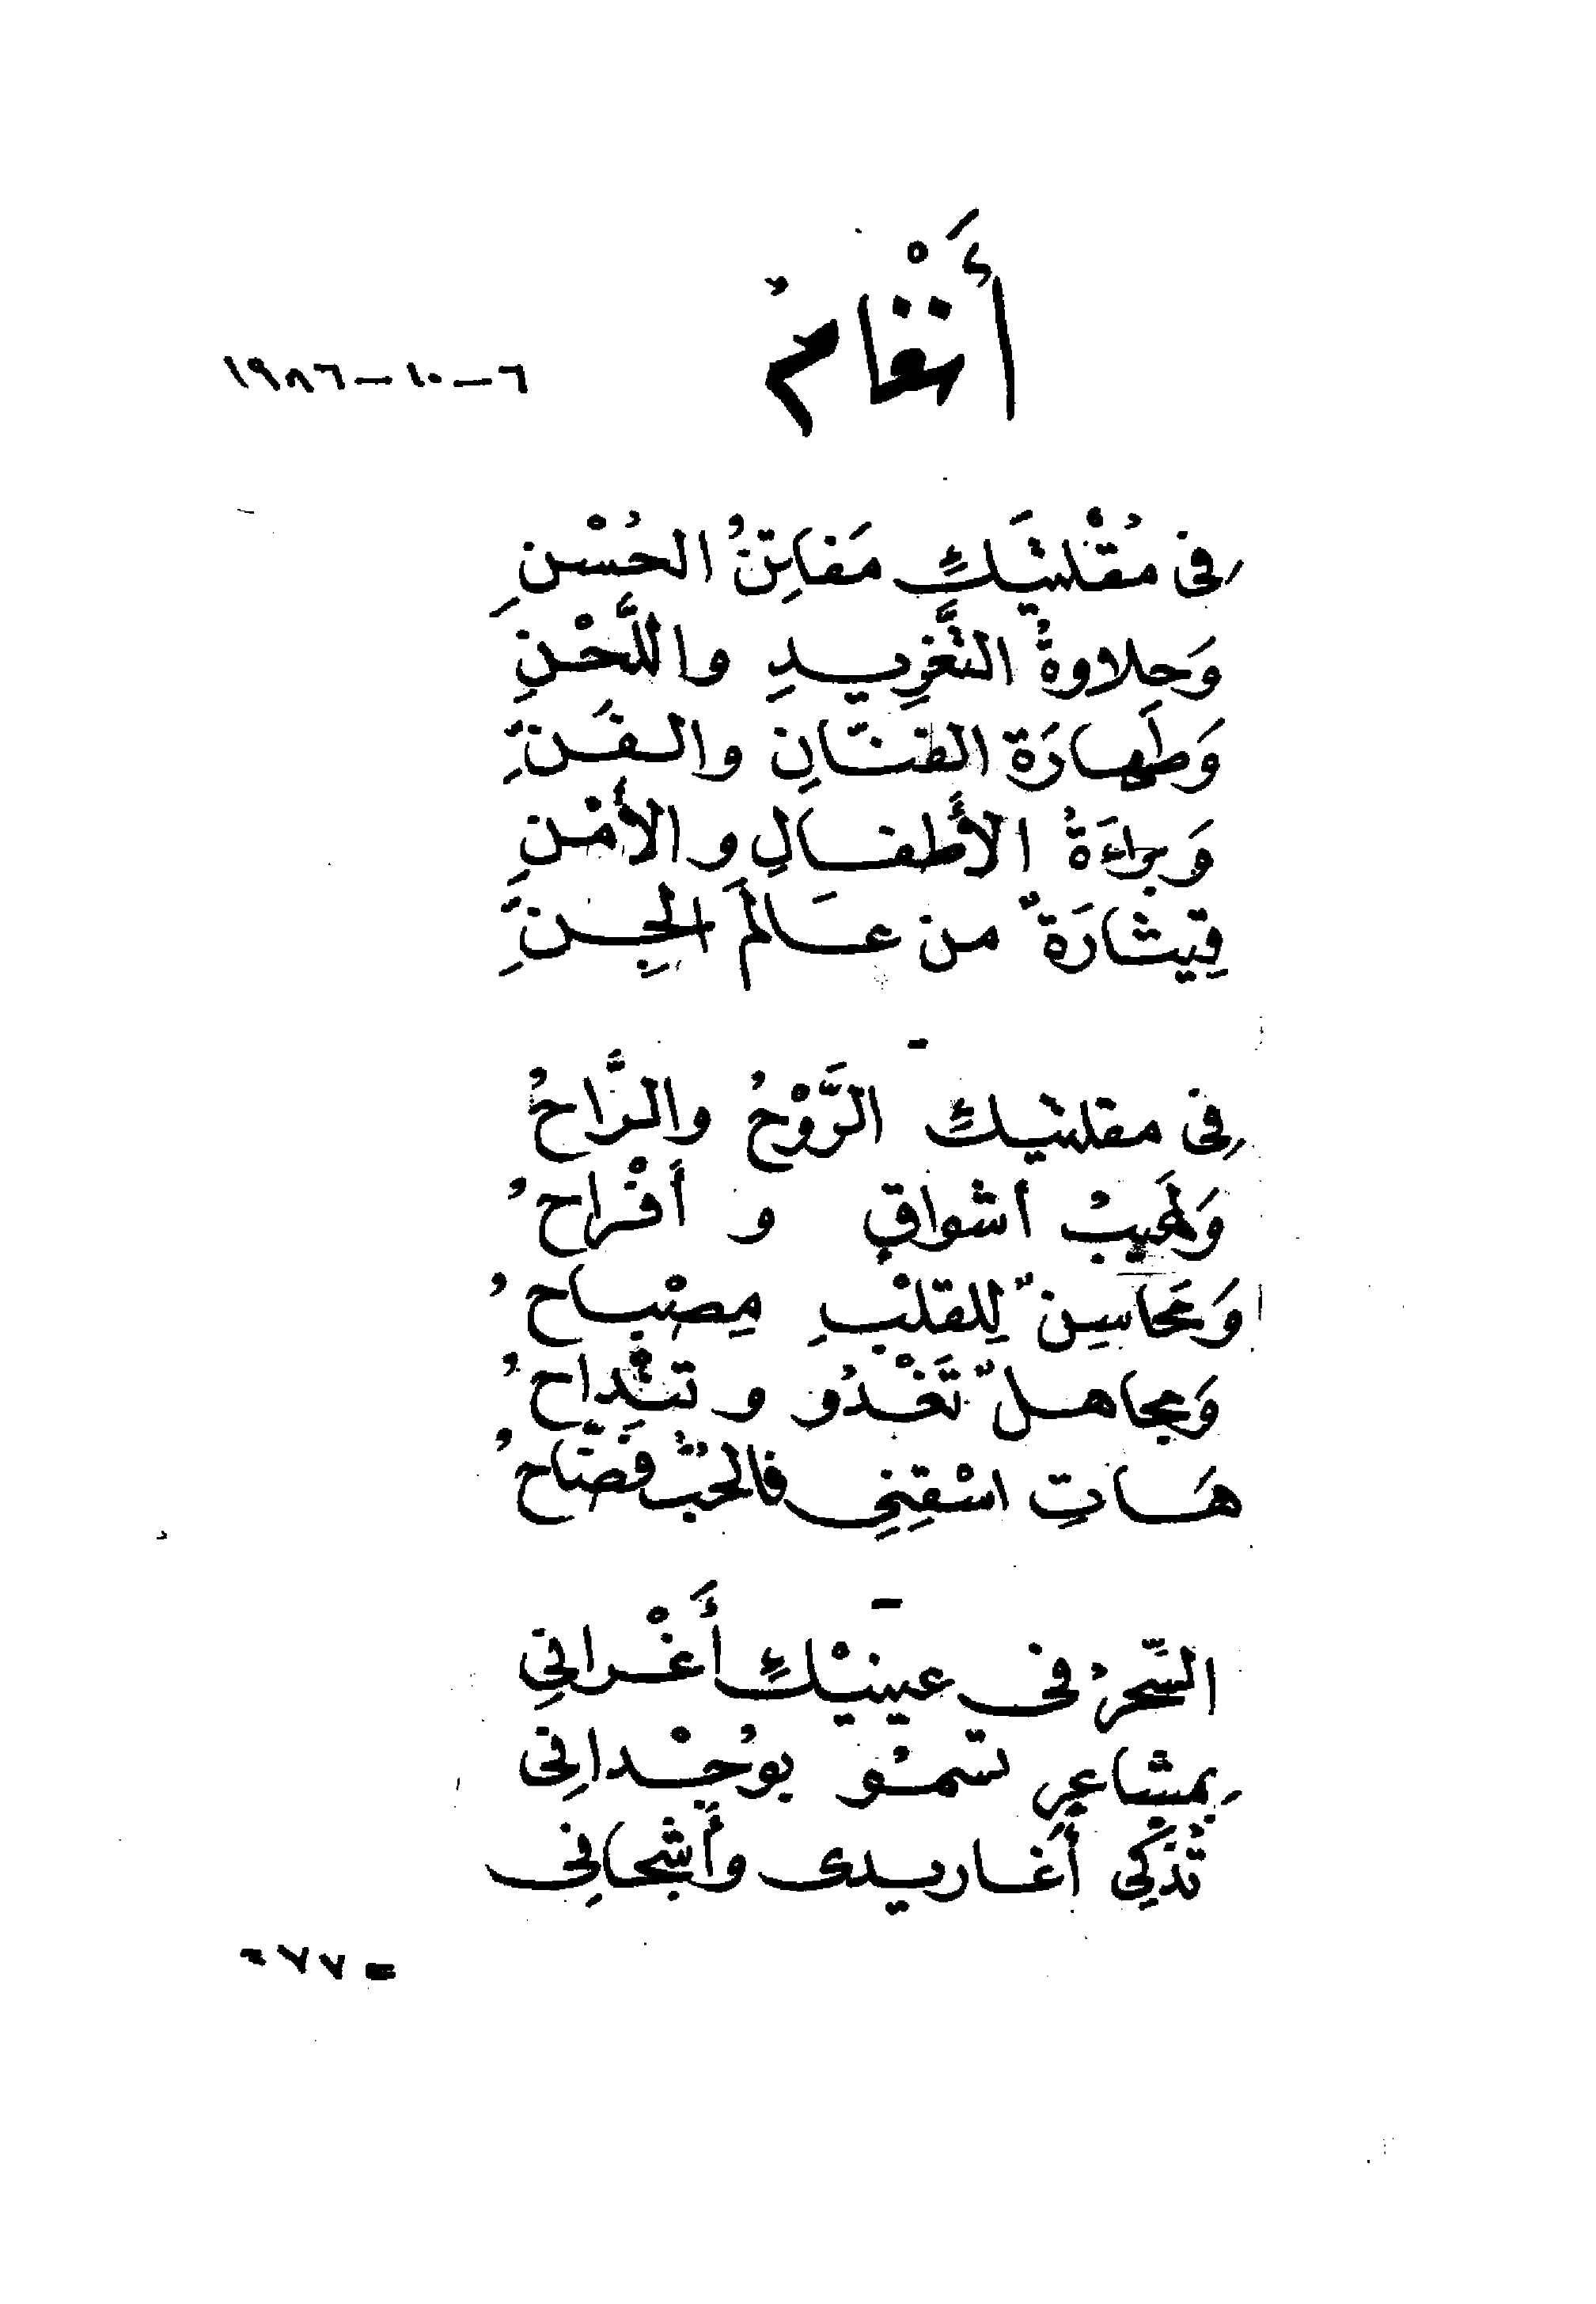 أَنْغَامٌ
٦-١٠-١٩٨٦
فِى مُقْلَتَيْكِ مَفَاتِنُ الحُسْنِ
وَحلاوةُ التَّغْرِيدِ واللَّحْنِ
وَطَهارَة الفنّانِ والفَنِّ
وَبراءَةُ الأَطفالِ والأَمْنِ
قِيثارَةٌ من عالَم الجِنِّ
-
فِى مقلتيكِ الرَّوْحُ والرَّاحُ
وَلَهيبُ أشواقٍ و أَفْراحُ
وَمَحاسِنٌ لِلقلْبِ مِصْباحُ
وَمجاهلٌ تَغْدُو و تنْداحُ
هَاتِ اسْقِنِى فالحُبُّ فَضَّاحُ
-
السِّحرُ فى عينيْكِ أَغْرانِى
بِمشاعرٍ تسْمُو بوُجْدانِى
تُذَكِى أَغاريدى وأَشجانِى
- ٧٧ -